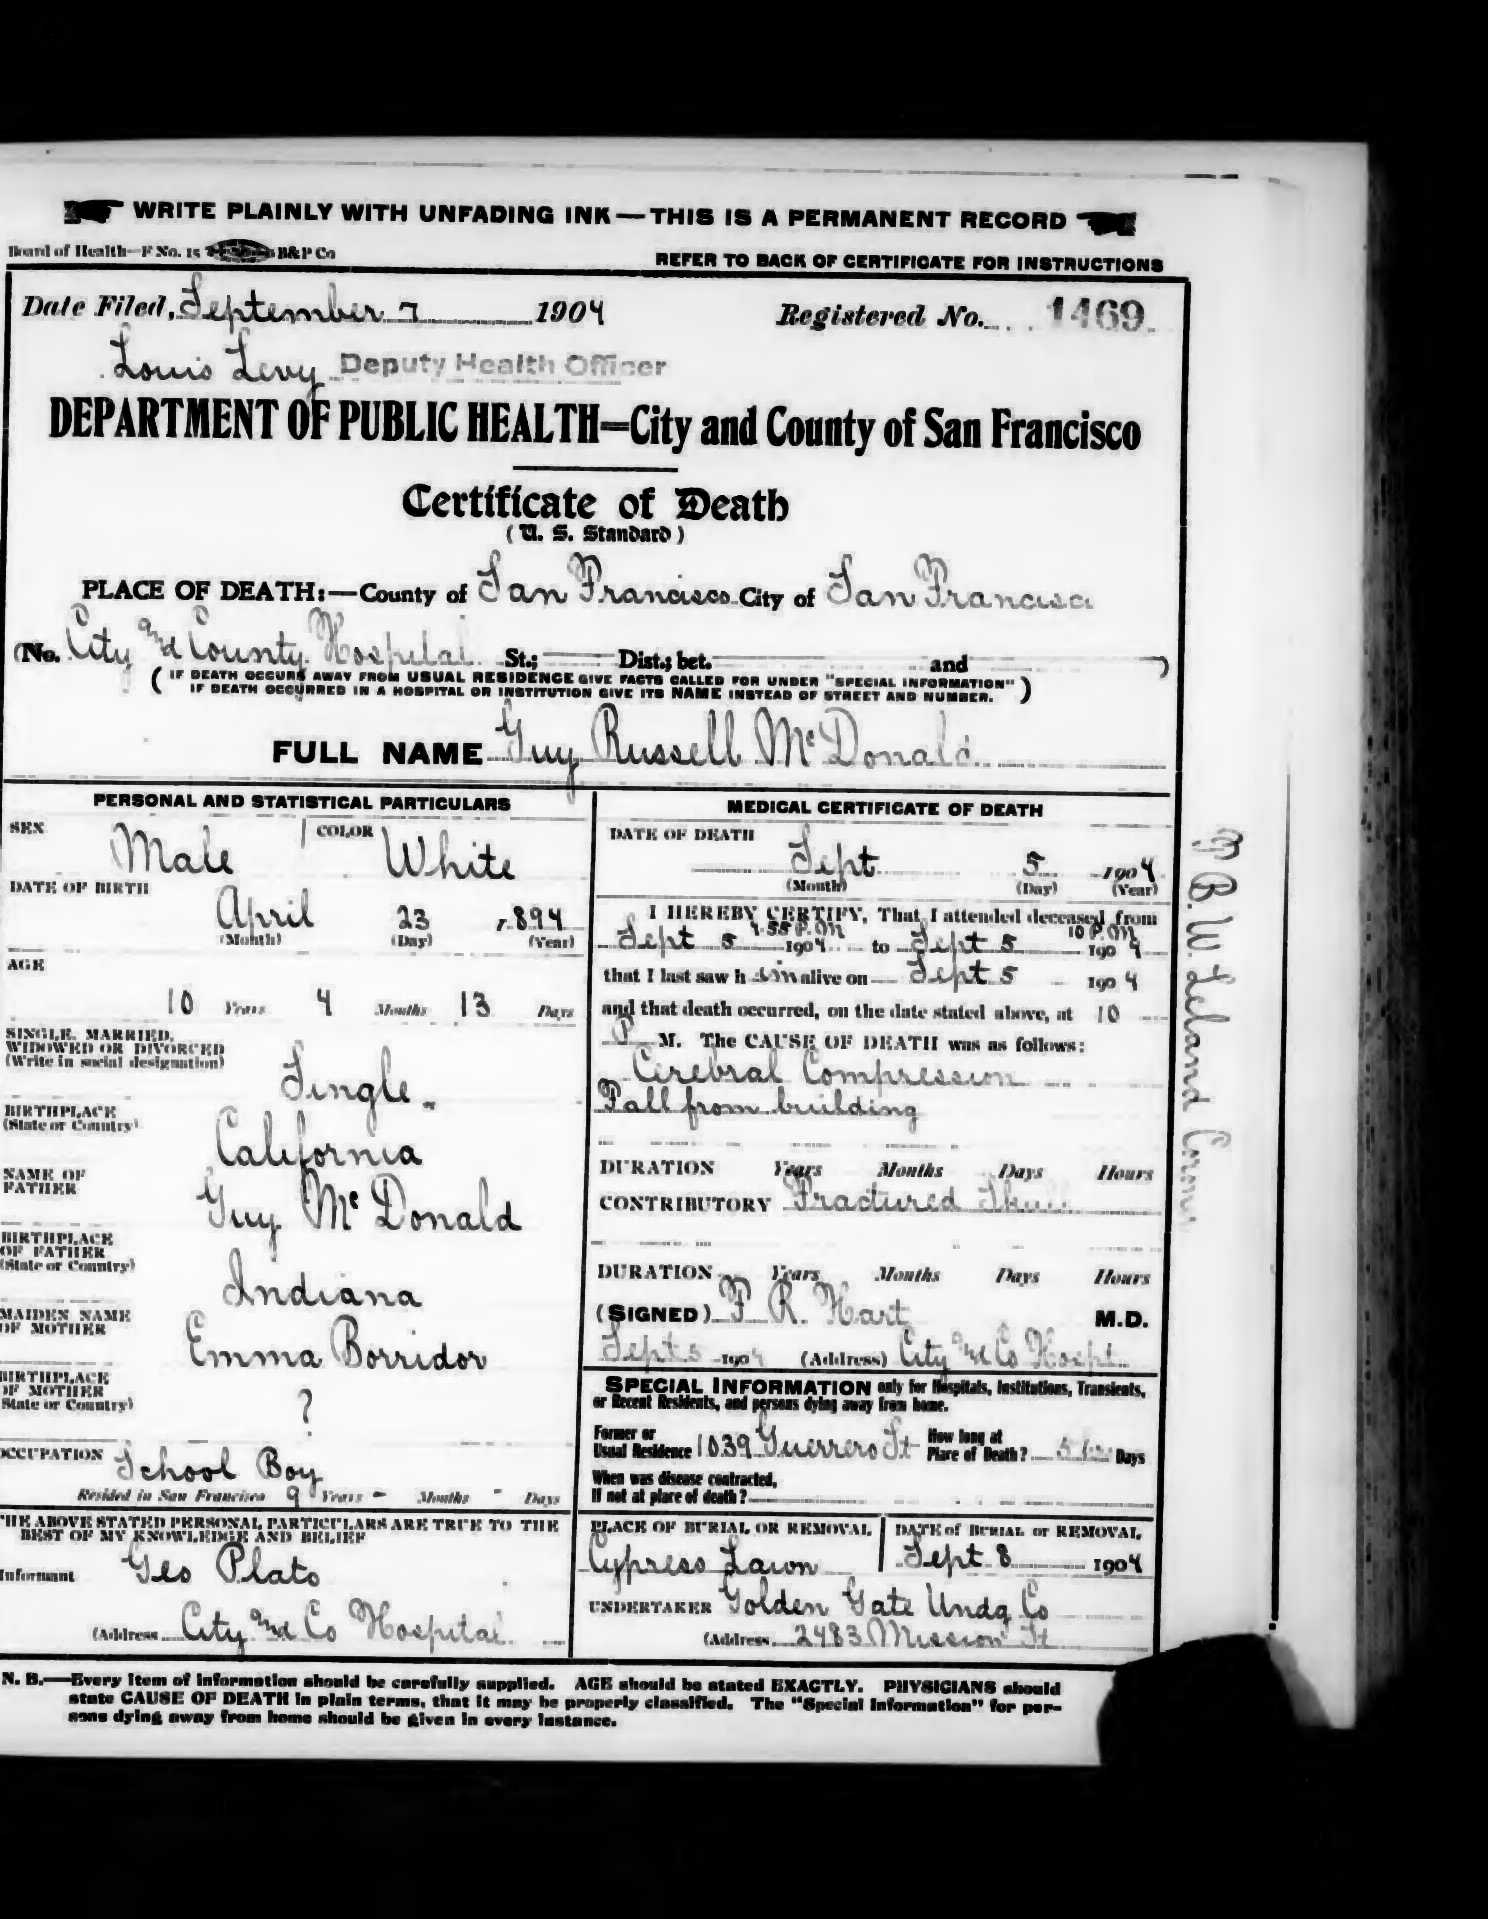 WRITE PLAINLY WITH UNFADING INK — THIS IS A PERMANENT RECORD
Board of Health—F No. 15 B&P Co
REFER TO BACK OF CERTIFICATE FOR INSTRUCTIONS
Date Filed, September 7 1904 Registered No. 1469
Louis Levy Deputy Health Officer
DEPARTMENT OF PUBLIC HEALTH=City and County of San Francisco
Certificate of Death
(U. S. Standard)
PLACE OF DEATH:—County of San Francisco City of San Francisco
(No. City and County Hospital St.; Dist.; bet. and )
( IF DEATH OCCURS AWAY FROM USUAL RESIDENCE GIVE FACTS CALLED FOR UNDER "SPECIAL INFORMATION"
IF DEATH OCCURRED IN A HOSPITAL OR INSTITUTION GIVE ITS NAME INSTEAD OF STREET AND NUMBER. )
FULL NAME Guy Russell McDonald
PERSONAL AND STATISTICAL PARTICULARS
SEX Male COLOR White
DATE OF BIRTH
April 23 1894
(Month) (Day) (Year)
AGE
10 Years 4 Months 13 Days
SINGLE, MARRIED,
WIDOWED OR DIVORCED
(Write in social designation)
Single
BIRTHPLACE
(State or Country)
California
NAME OF
FATHER
Guy McDonald
BIRTHPLACE
OF FATHER
(State or Country)
Indiana
MAIDEN NAME
OF MOTHER
Emma Borridor
BIRTHPLACE
OF MOTHER
State or Country)
?
OCCUPATION School Boy
Resided in San Francisco 9 Years - Months - Days
THE ABOVE STATED PERSONAL PARTICULARS ARE TRUE TO THE
BEST OF MY KNOWLEDGE AND BELIEF
Informant Geo Plato
(Address City and Co Hospital
MEDICAL CERTIFICATE OF DEATH
DATE OF DEATH
Sept 5 1904
(Month) (Day) (Year)
I HEREBY CERTIFY, That I attended deceased from
55 P.M 10 P.M
Sept 5 1904 to Sept 5 1904
that I last saw h im alive on Sept 5 1904
and that death occurred, on the date stated above, at 10
P M. The CAUSE OF DEATH was as follows:
Cerebral Compression
Fall from building
DURATION Years Months Days Hours
CONTRIBUTORY Fractured Skull
DURATION Years Months Days Hours
(SIGNED) F R. Hart M.D.
Sept 5 1904 (Address) City and Co Hospt.
SPECIAL INFORMATION only for Hospitals, Institutions, Transients,
or Recent Residents, and persons dying away from home.
Former or
Usual Residence 1039 Guerrero St
How long at
Place of Death? 5 Days
When was disease contracted,
If not at place of death?
PLACE OF BURIAL OR REMOVAL DATE of BURIAL or REMOVAL
Cypress Lawn Sept 8 1904
UNDERTAKER Golden Gate Undg Co
(Address 2483 Mission St
N. B.—Every item of information should be carefully supplied. AGE should be stated EXACTLY. PHYSICIANS should
state CAUSE OF DEATH in plain terms, that it may be properly classified. The "Special Information" for per-
sons dying away from home should be given in every instance.
B. W. Leland Coroner